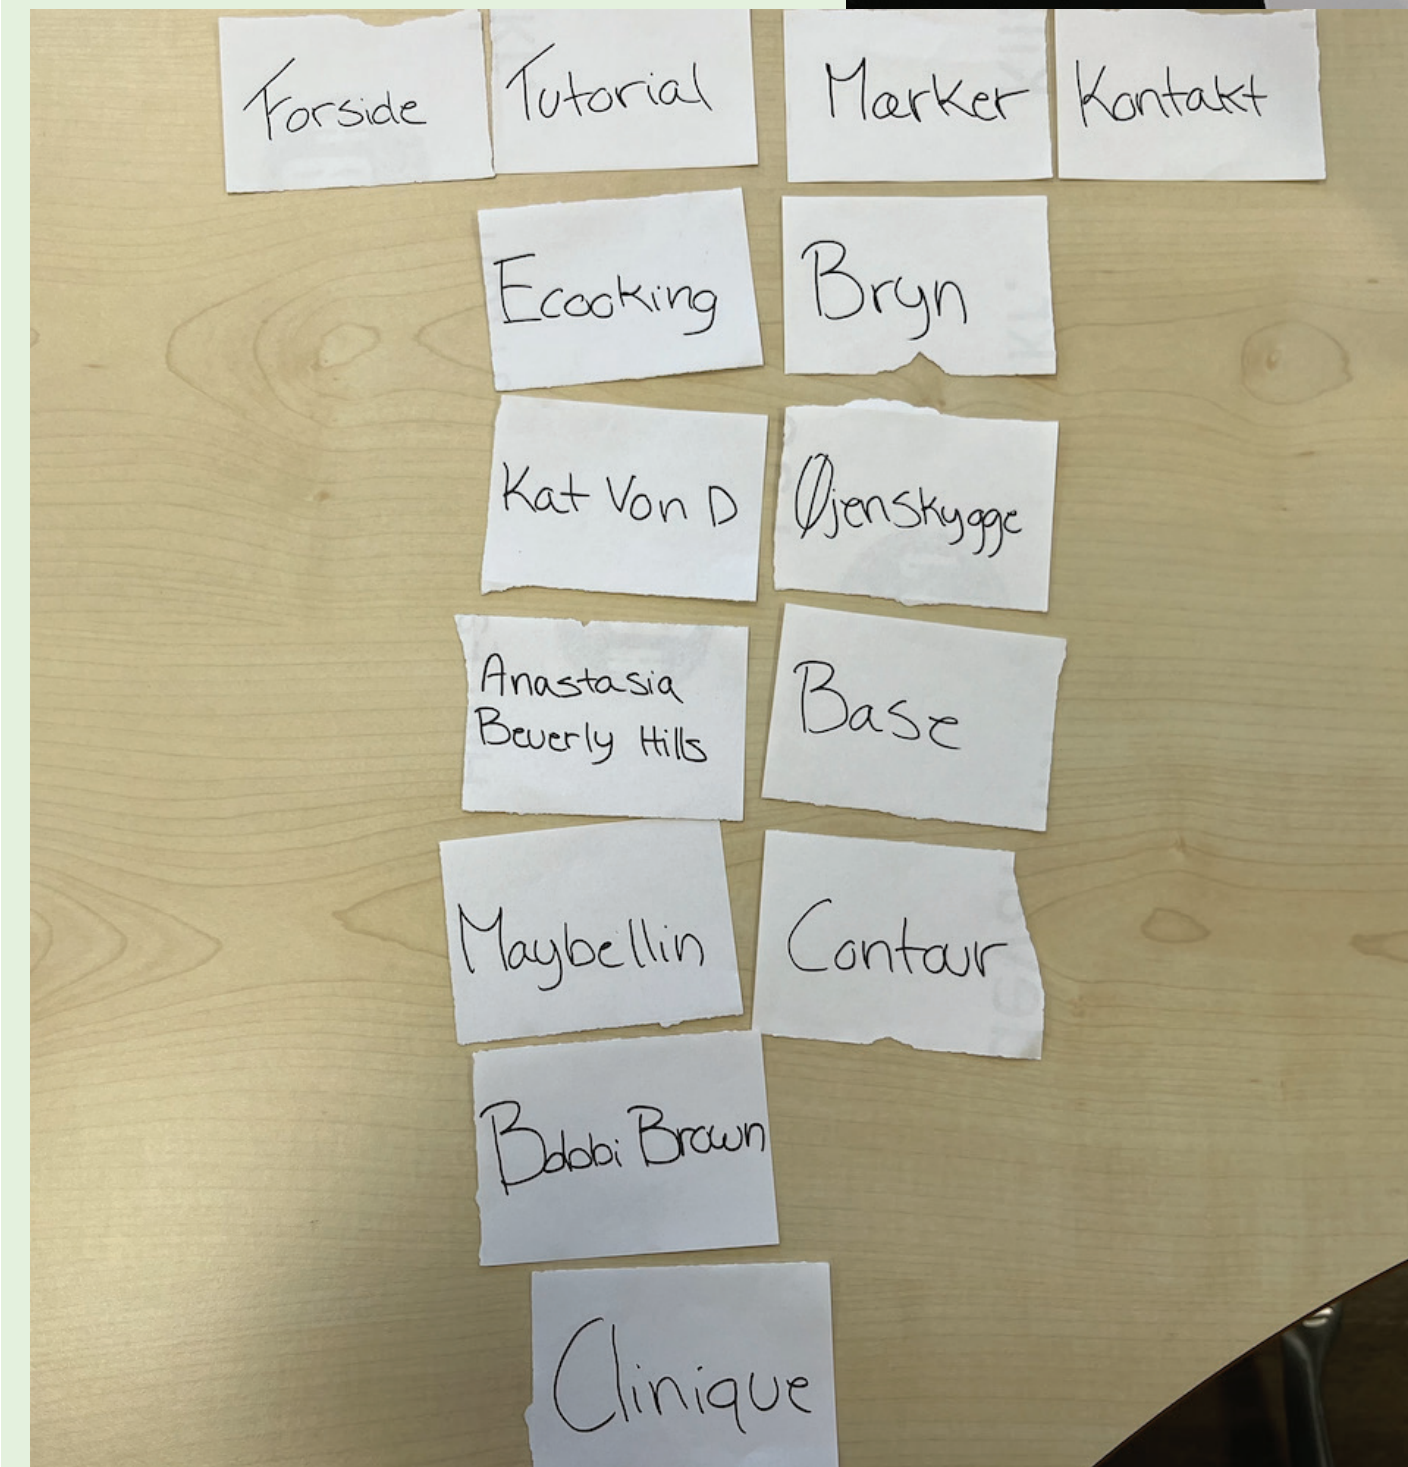 Forside
Tutorial
Mærker
Kontakt
Ecooking
Bryn
Kat Von D
Øjenskygge
Anastasia
Beverly Hills
Base
Maybellin
Contour
Bobbi Brown
Clinique